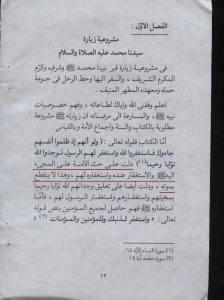 الفصل الأول :
مشروعية زيارة
سيدنا محمد عليه الصلاة والسلام
في مشروعية زيارة قبر نبينا محمد ﷺ وشرف وكرم
المكرم الشريف ، والسفر إليها وحط الرحل في حومة
حماه ومعهده المطهر المنيف .
اعلم وفقني الله وإياك لطاعاته ، وفهم خصوصيات
نبيه ﷺ والمسارعة إلى مرضاته ان زيارته ﷺ مشروعة
مطلوبة بالكتاب والسنة وإجماع الأمة وبالقياس
أمّا الكتاب فقوله تعالى : ( ولو أنهم إذ ظلموا أنفسهم
جاءوك فاستغفروا الله واستغفر لهم الرسول لوجدوا الله
توابا رحيما ) (١) دلت على حث الأمة على المجيء
إليه ﷺ والاستغفار عنده واستغفاره لهم ، وهذا لا ينقطع
بموته ، ودلت أيضا على تعليق وجدانهم الله توابا رحيما
بمجيئهم واستغفارهم واستغفار الرسول لهم ، فأما
استغفاره ﷺ فهو حاصل لجميع المؤمنين بنص قوله
تعالى : ( واستغفر لذنبك وللمؤمنين والمؤمنات ) (٢)
(١) سورة النساء الآية ٦٤ .
(٢) سورة محمد آية ١٩ .
١٣